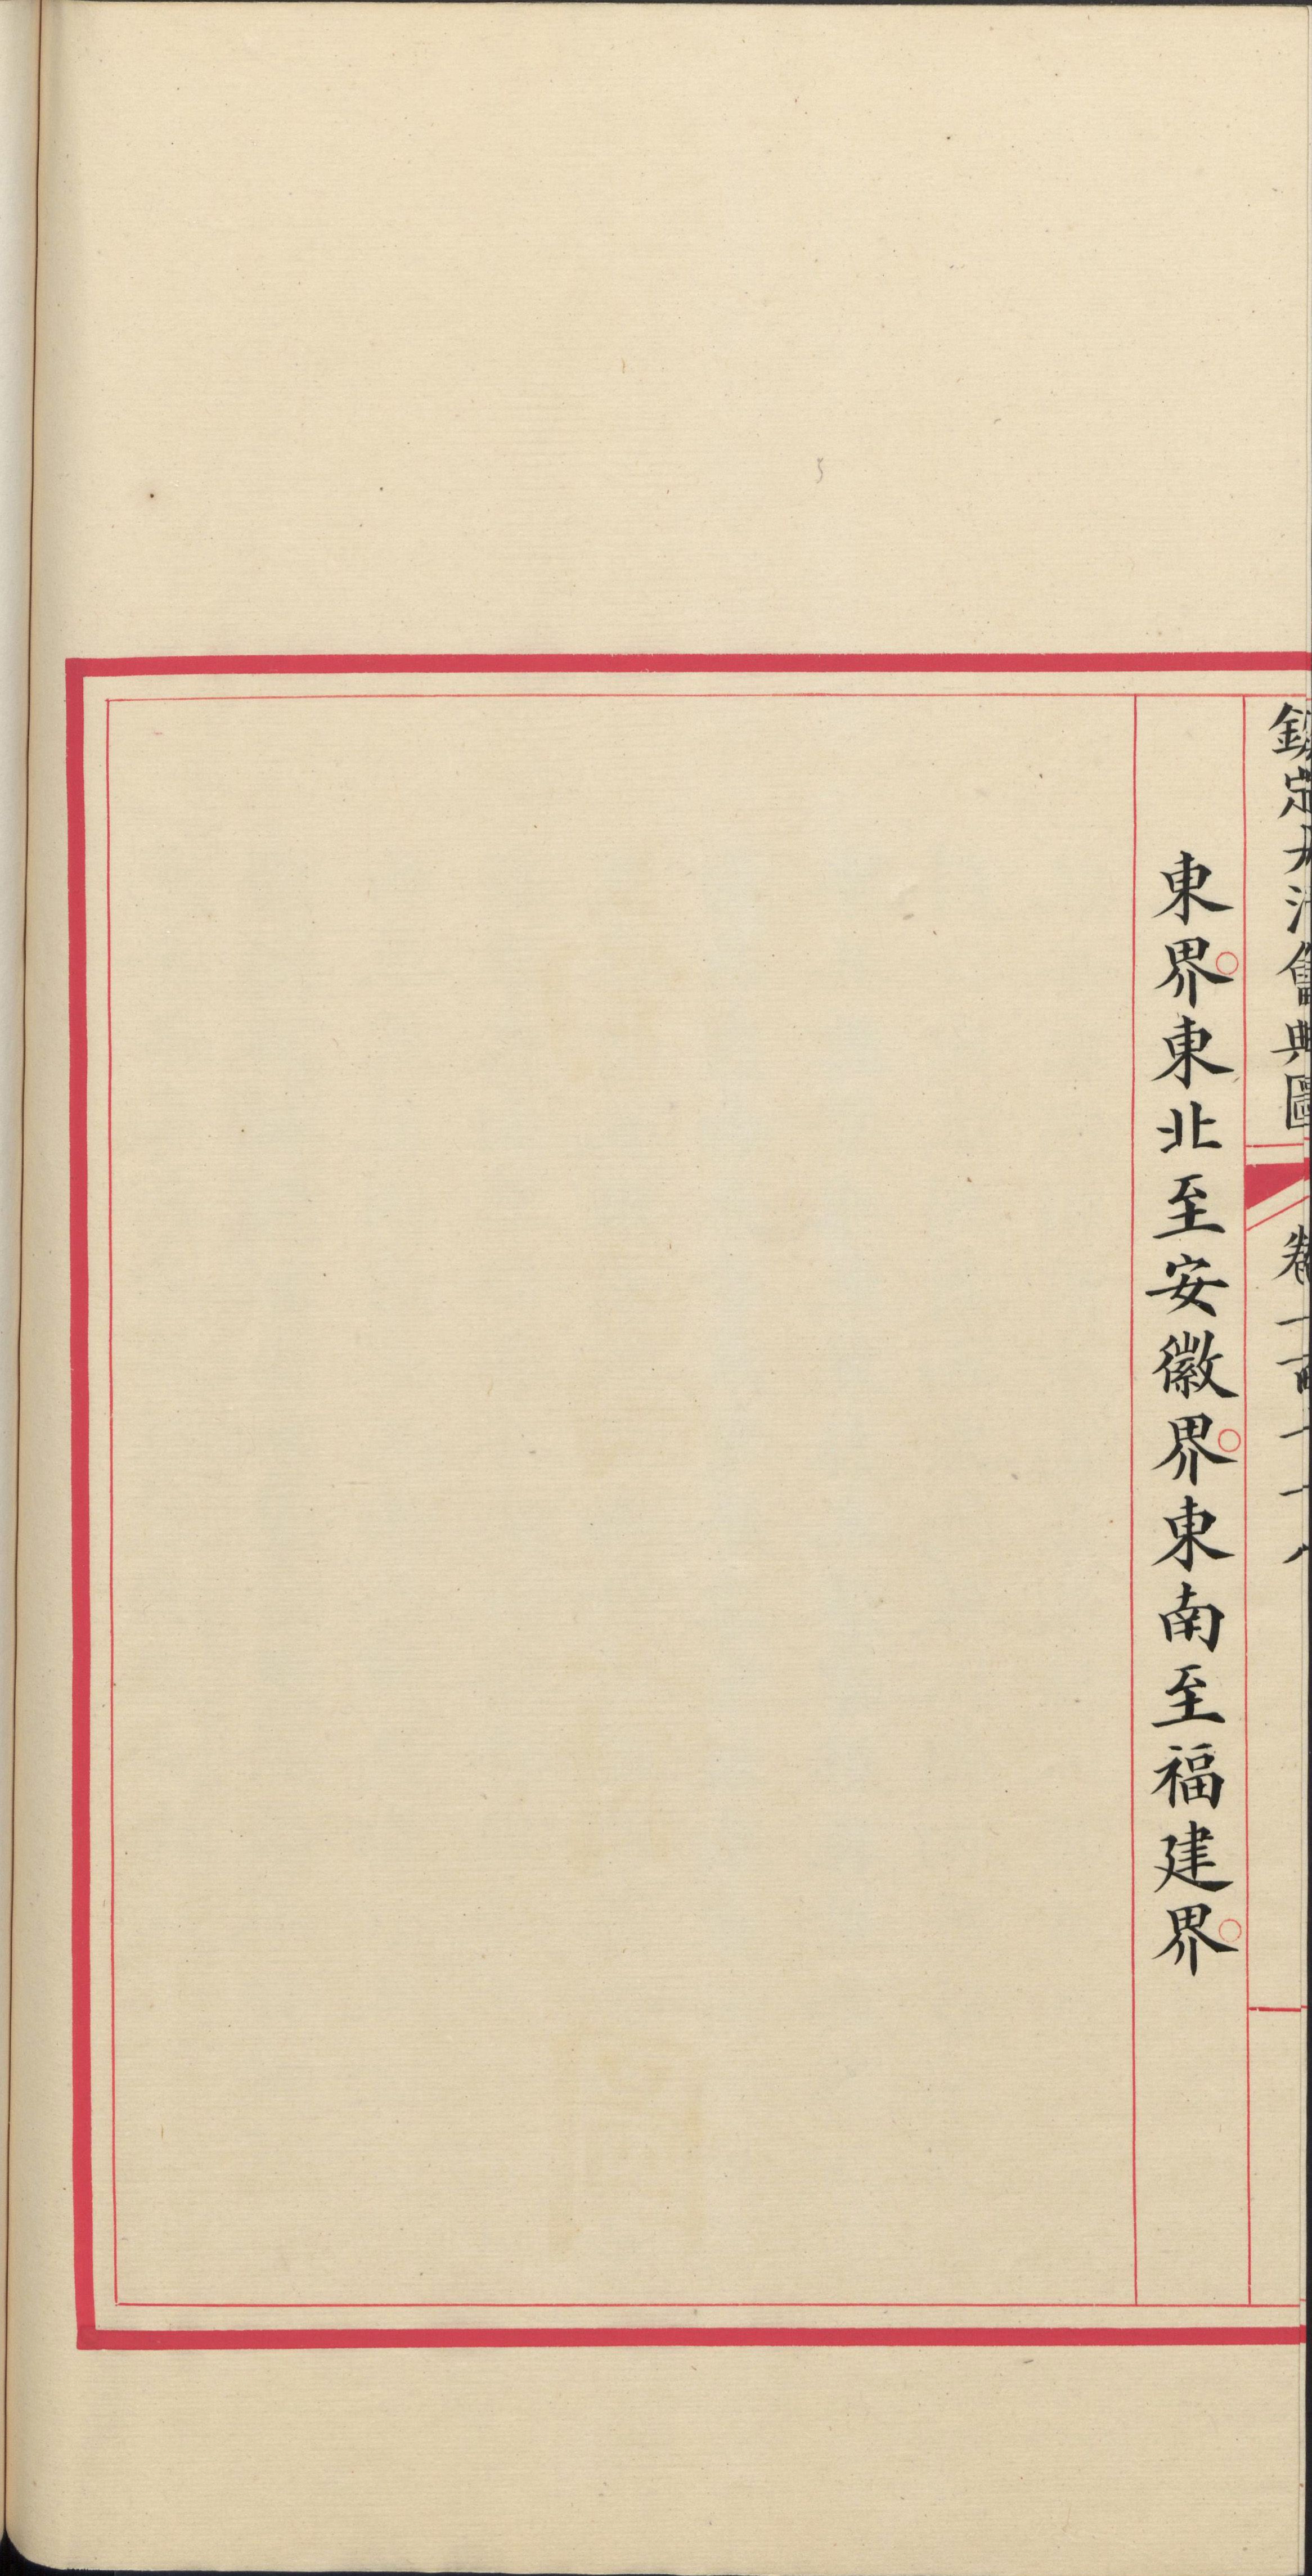 欽定大清會典圖 卷一百
東界。東北至安徽界。東南至福建界。